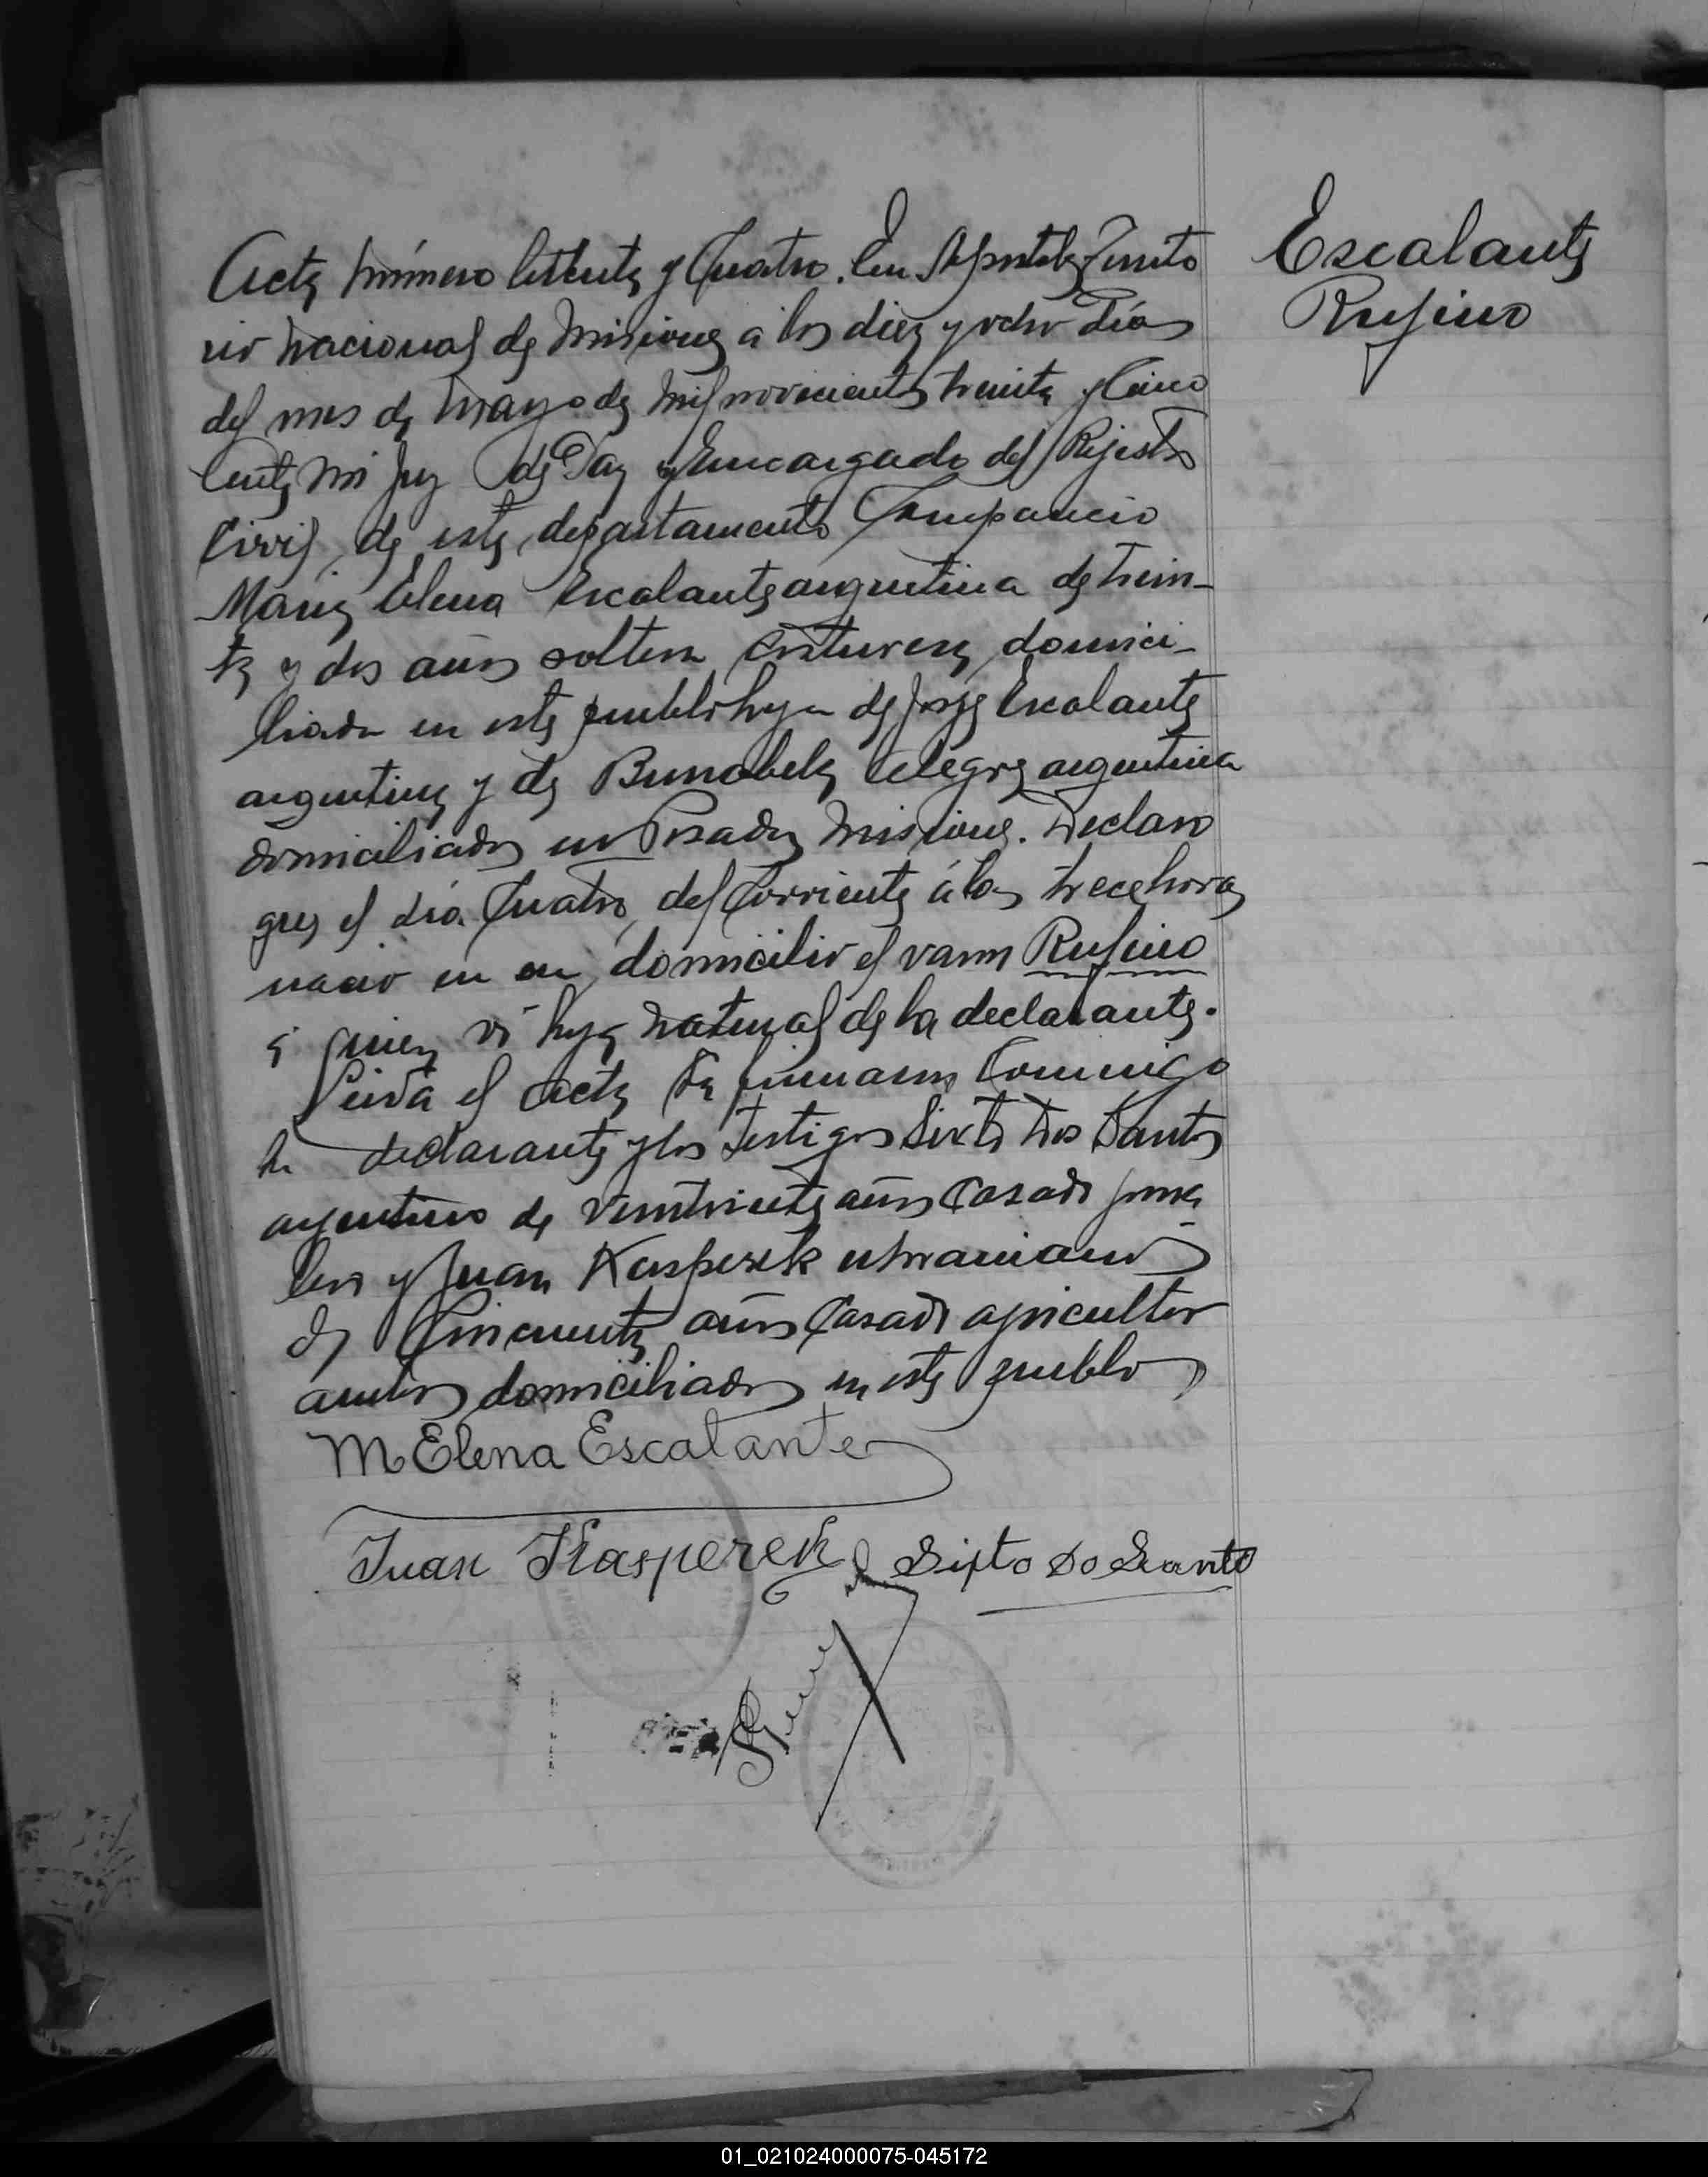 Escalante
Rufino
Acta número setenta y Cuatro. En Apostoles Territo
rio Nacional de Misiones a los diez y ocho dias
del mes de Mayo de mil novecientos treinta y Cinco
Ante mi Juez de Paz y Encargado del Rejistro
Civil de este departamento Compareció
Maria Elena Escalante argentina de trein-
ta y dos años soltera Costurera domici-
liada en este pueblo hija de Jorge Escalante
argentino y de Alegre argentina
domiciliados en Posadas Misiones. Declaro
que el día Cuatro del Corriente á las trece horas
nació en su domicilio el varon Rufino
quien es hijo natural de la declarante.
Leida el acta la firmaron Conmigo
la declarante y los Testigos Sixto Dos Santos
argentino de veintisiete años Casado jorna
lero y Juan Kasperek ukraniano
de Cincuenta años Casado agricultor
ambos domiciliados en este pueblo
M Elena Escalante
Juan Kasperek Sixto Do Santo
01_021024000075-045172